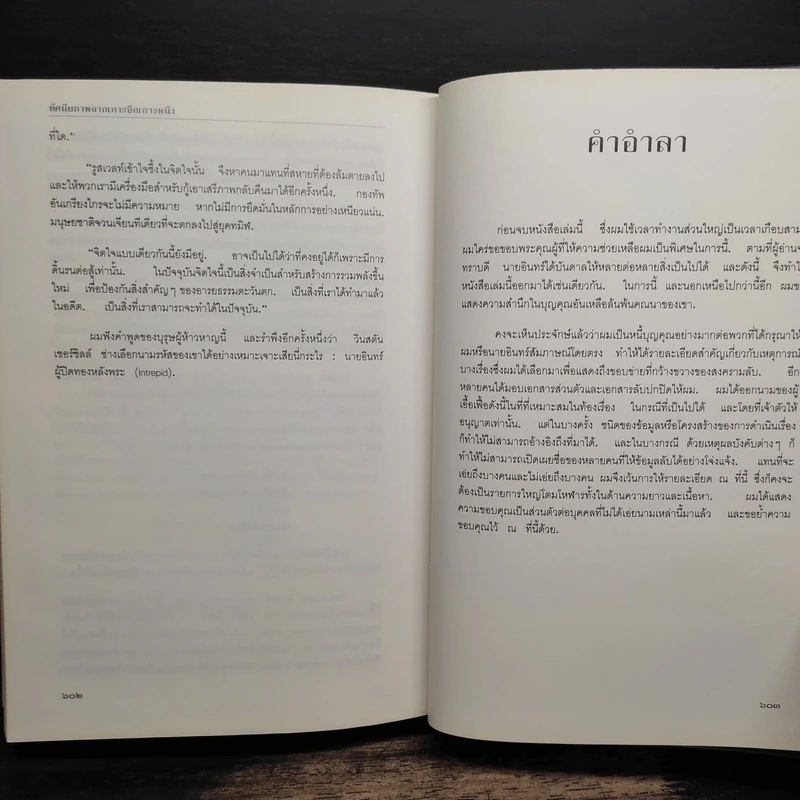 ทัศนียภาพจากเกาะอีกเกาะหนึ่ง
ที่ใด."
"รูสเวลท์เข้าใจซึ้งในจิตใจนั้น จึงหาคนมาแทนที่สหายที่ต้องล้มตายลงไป
และให้พวกเรามีเครื่องมือสำหรับกู้เอาเสรีภาพกลับคืนมาได้อีกครั้งหนึ่ง. กองทัพ
อันเกรียงไกรจะไม่มีความหมาย หากไม่มีการยึดมั่นในหลักการอย่างเหนียวแน่น.
มนุษยชาติจวนเจียนทีเดียวที่จะตกลงไปสู่ยุคทมิฬ.
"จิตใจแบบเดียวกันนี้ยังมีอยู่. อาจเป็นไปได้ว่าที่คงอยู่ได้ก็เพราะมีการ
ดิ้นรนต่อสู้เท่านั้น. ในปัจจุบันจิตใจนี้เป็นสิ่งจำเป็นสำหรับสร้างการรวมพลังขึ้น
ใหม่ เพื่อป้องกันสิ่งสำคัญๆ ของอารยธรรมตะวันตก. เป็นสิ่งที่เราได้ทำมาแล้ว
ในอดีต. เป็นสิ่งที่เราสามารถจะทำได้ในปัจจุบัน."
ผมฟังคำพูดของบุรุษผู้ห้าวหาญนี้ และรำพึงอีกครั้งหนึ่งว่า วินสตัน
เชอร์ชิลล์ ช่างเลือกนามรหัสของเขาได้อย่างเหมาะเจาะเสียนี่กระไร : นายอินทร์
ผู้ปิดทองหลังพระ (Intrepid).
๖๐๒
คำอำลา
ก่อนจบหนังสือเล่มนี้ ซึ่งผมใช้เวลาทำงานส่วนใหญ่เป็นเวลาเกือบสาม
ผมใคร่ขอขอบพระคุณผู้ที่ให้ความช่วยเหลือผมเป็นพิเศษในการนี้. ตามที่ผู้อ่านจะ
ทราบดี นายอินทร์ได้บันดาลให้หลายต่อหลายสิ่งเป็นไปได้ และดังนี้ จึงทำให้
หนังสือเล่มนี้ออกมาได้เช่นเดียวกัน. ในการนี้ และนอกเหนือไปกว่านี้อีก ผมขอ
แสดงความสำนึกในบุญคุณอันเหลือล้นพ้นคณนาของเขา.
คงจะเห็นประจักษ์แล้วว่าผมเป็นหนี้บุญคุณอย่างมากต่อพวกที่ได้กรุณาให้
ผมหรือนายอินทร์สัมภาษณ์โดยตรง ทำให้ได้รายละเอียดสำคัญเกี่ยวกับเหตุการณ์
บางเรื่องซึ่งผมได้เลือกมาเพื่อแสดงถึงขอบข่ายที่กว้างขวางของสงครามลับ. อีก
หลายคนได้มอบเอกสารส่วนตัวและเอกสารลับปกปิดให้ผม. ผมได้ออกนามของผู้
เอื้อเฟื้อดังนี้ในที่ที่เหมาะสมในท้องเรื่อง ในกรณีที่เป็นไปได้ และโดยที่เจ้าตัวให้
อนุญาตเท่านั้น. แต่ในบางครั้ง ชนิดของข้อมูลหรือโครงสร้างของการดำเนินเรื่อง
ก็ทำให้ไม่สามารถอ้างอิงถึงที่มาได้. และในบางกรณี ด้วยเหตุผลบังคับต่างๆ ก็
ทำให้ไม่สามารถเปิดเผยชื่อของหลายคนที่ให้ข้อมูลลับได้อย่างโจ่งแจ้ง. แทนที่จะ
เอ่ยถึงบางคนและไม่เอ่ยถึงบางคน ผมจึงเว้นการให้รายละเอียด ณ ที่นี้ ซึ่งก็คงจะ
ต้องเป็นรายการใหญ่โตมโหฬารทั้งในด้านความยาวและเนื้อหา. ผมได้แสดง
ความขอบคุณเป็นส่วนตัวต่อบุคคลที่ไม่ได้เอ่ยนามเหล่านี้มาแล้ว และขอย้ำความ
ขอบคุณไว้ ณ ที่นี้ด้วย.
๖๐๓